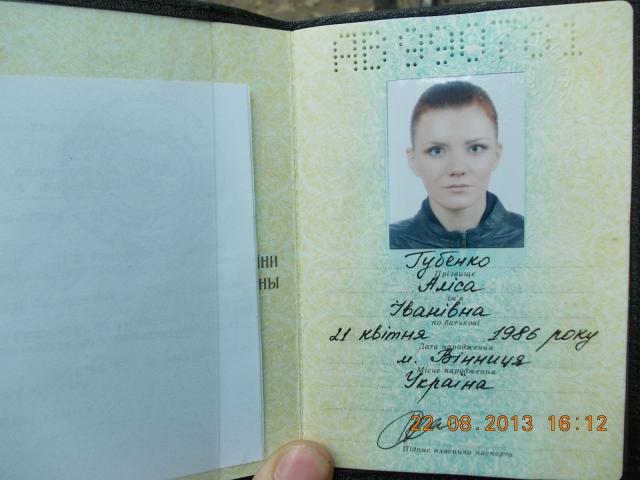 ИНИ
НЫ
Губенко
Прізвище
Аліса
ім'я
Іванівна
по батькові
21 квітня 1986 року
Дата народження
м. Вінниця
Місце народження
Україна
22-08.2013 16:12
Підпис власника паспорта